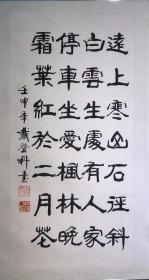 遠上寒山石徑斜
白雲生處有人家
停車坐愛楓林晚
霜葉紅於二月花
壬申年戴登科書